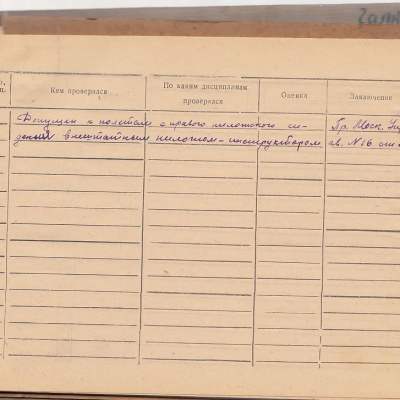 Кем проверялся
По каким дисциплинам
проверялся
Оценка
Заключение
Допущен к полетам с правого пилотского си-
дения внештатным пилотом-инструктором
Пр. Моск. Упр
ав. №16 от